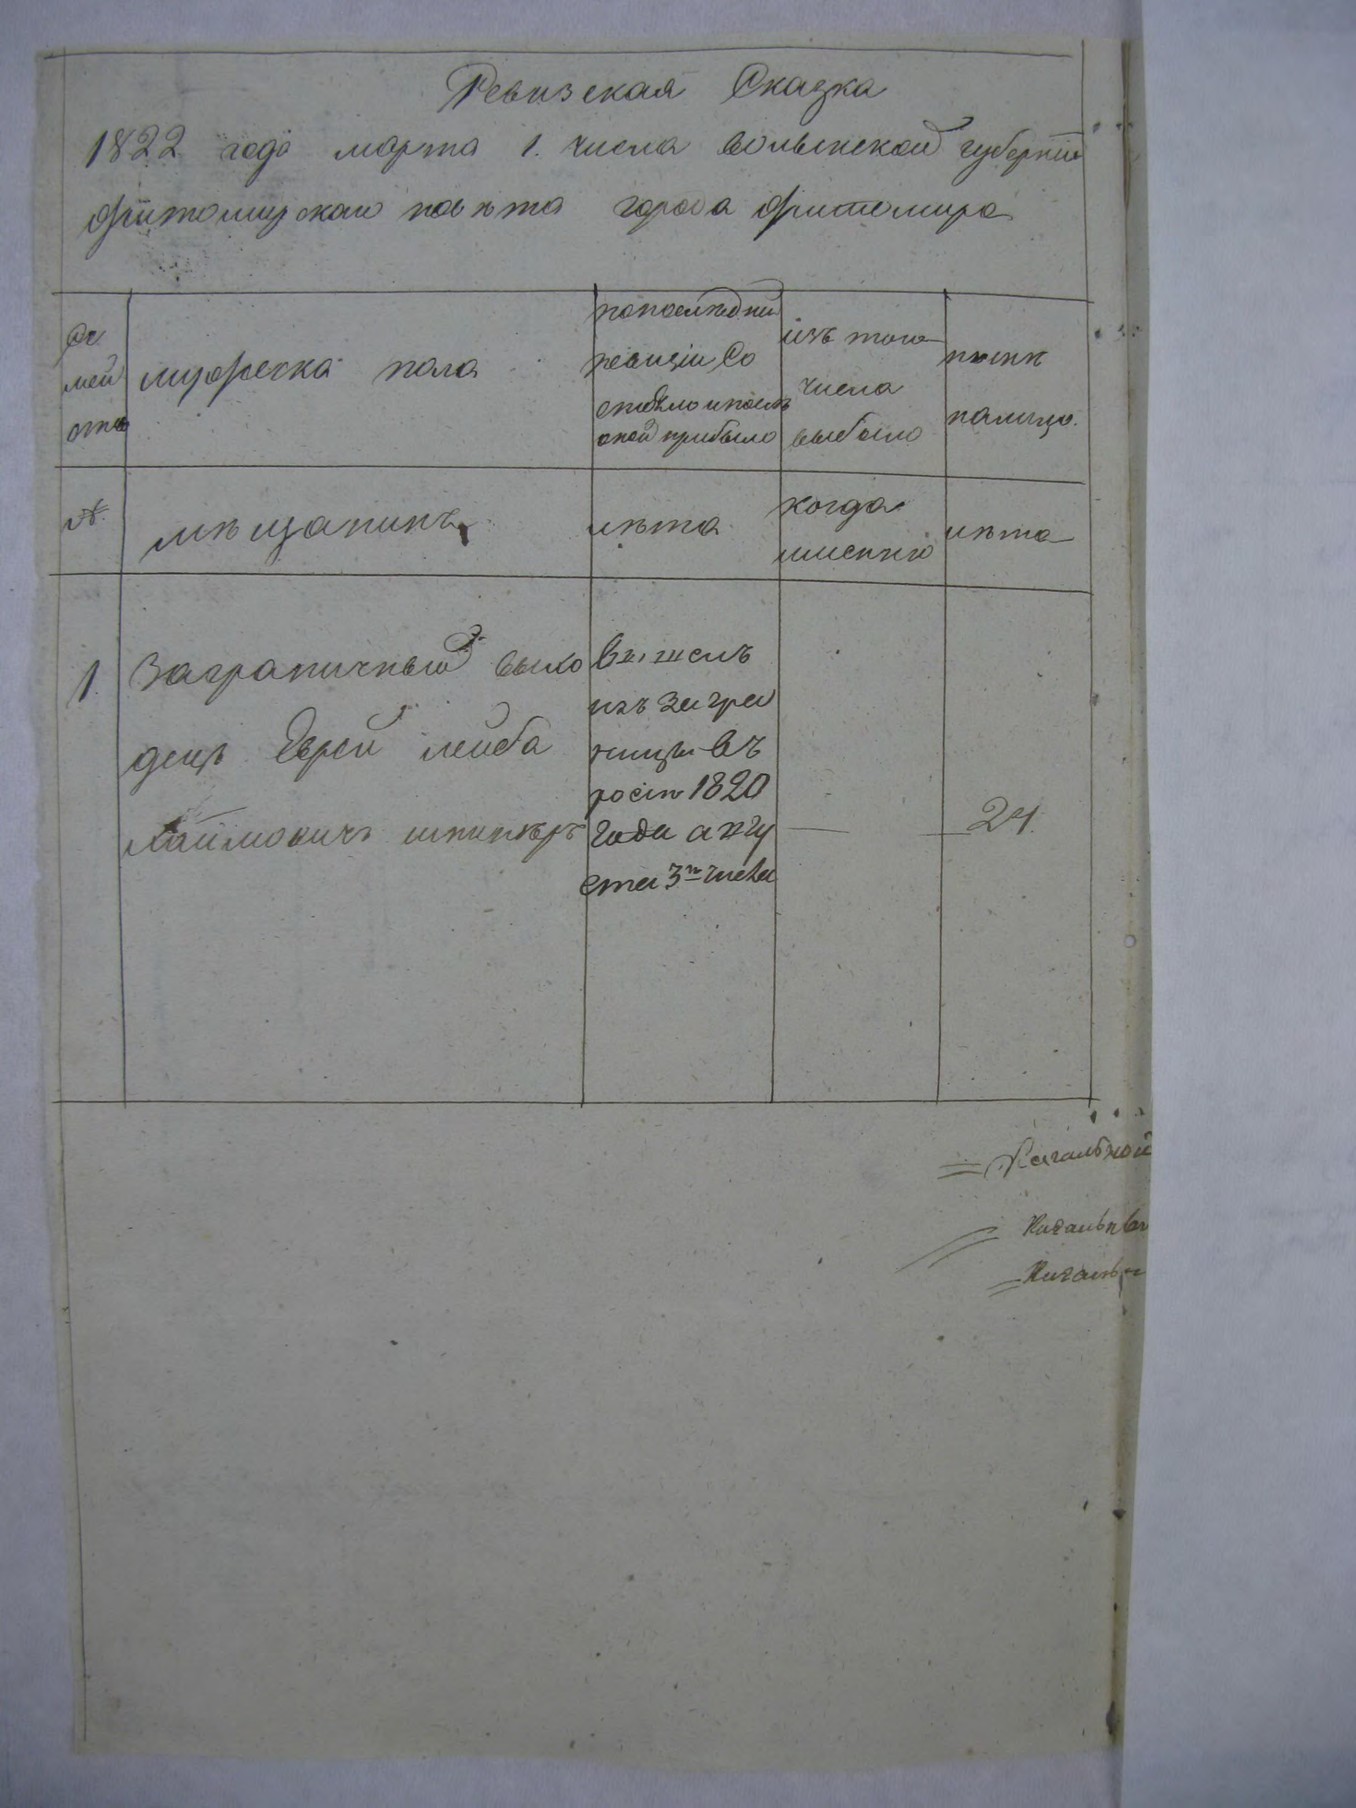 Ревизская Сказка
1822 года марта 1. числа волынской губернии
житомирскаго повѣта города житомира
Се
мей
ства
мужеска пола
попоследней
ревизіи Со
стояло ипосле
оной прибыло
изъ того
числа
выбыло
нынѣ
налицо.
№.
мѣщанинъ
лѣта
когда
именно
лѣта
1.
Заграничный выхо
децъ Еврей лейба
Хаймовичъ шпинеръ
вышелъ
изъ загра
ницы въ
росіи 1820
года авгу
ста 3го числа
24.
Кагальной
Кагальный
Кагальн